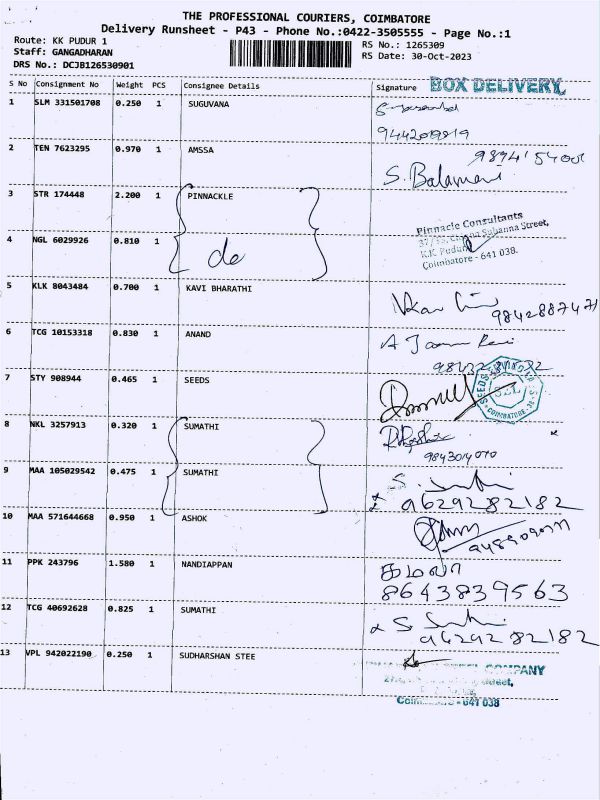 THE PROFESSIONAL COURIERS, COIMBATORE
Delivery Runsheet - P43 - Phone No.:0422-3505555 - Page No.:1
Route: KK PUDUR 1
RS No.: 1265309
Staff: GANGADHARAN
RS Date: 30-Oct-2023
DRS No.: DCJB126530901
S No Consignment No Weight PCS Consignee Details Signature BOX DELIVERY
1 SLM 331501708 0.250 1 SUGUVANA
2 TEN 7623295 0.970 1 AMSSA
S. Balamani
3 STR 174448 2.200 1 PINNACKLE
Pinnacle Consultants
Subanna Street,
K.K Pudur
4 NGL 6029926 0.810 1 de
Coimbatore - 641 038.
5 KLK 8043484 0.700 1 KAVI BHARATHI
9842887471
6 TCG 10153318 0.830 1 ANAND
7 STY 908944 0.465 1 SEEDS
SEEDS
COIMBATORE
8 NKL 3257913 0.320 1 SUMATHI
9 MAA 105029542 0.475 1 SUMATHI
9629282182
10 MAA 571644668 0.950 1 ASHOK
11 PPK 243796 1.580 1 NANDIAPPAN
கமலா
8643839563
12 TCG 40692628 0.825 1 SUMATHI
9629282182
13 VPL 942022190 0.250 1 SUDHARSHAN STEE
STEEL COMPANY
Street,
641 038